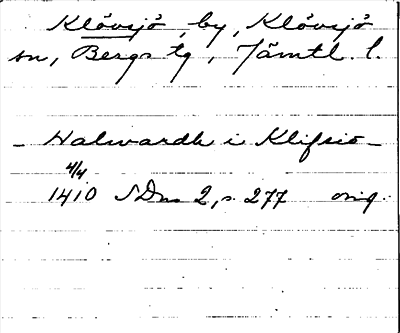 Klövsjö, by, Klövsjö
sn, Bergs tg, Jämtl. l.
- Halwardh i Klifsio -
4/4
1410 SDns 2, s. 277 orig.